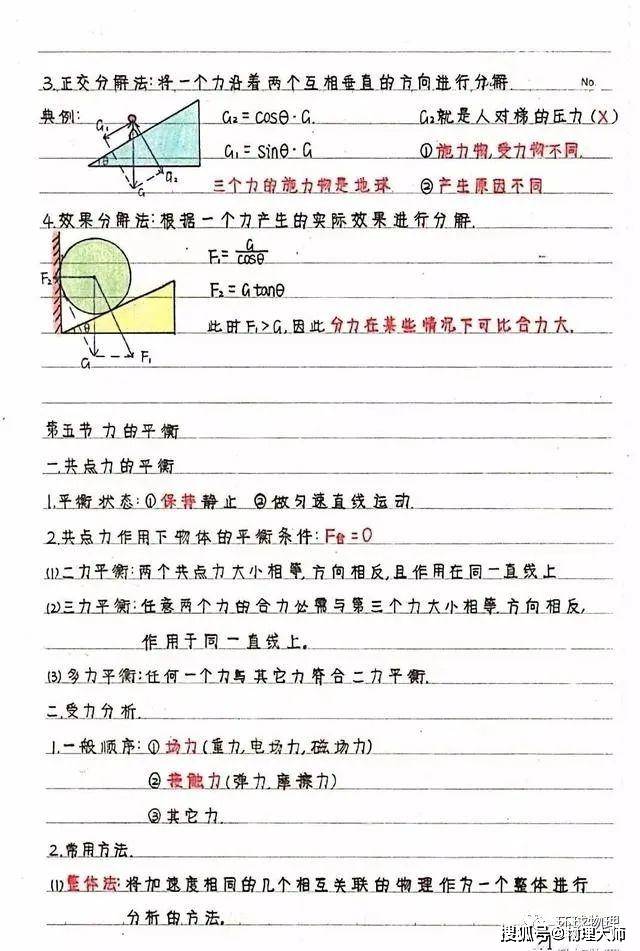 No.
3.正交分解法:将一个力沿着两个互相垂直的方向进行分解.
典例:
G₁
θ
G
G₂
G₂=cosθ·G.
G₁=sinθ·G
G₂就是人对梯的压力(X)
①施力物,受力物不同.
三个力的施力物是地球.
②产生原因不同
4.效果分解法:根据一个力产生的实际效果进行分解.
F₂
θ
G
F₁
F₁=G/cosθ
F₂=Gtanθ
此时F₁>G,因此分力在某些情况下可比合力大.
第五节 力的平衡
一.共点力的平衡
1.平衡状态:①保持静止 ②做匀速直线运动.
2.共点力作用下物体的平衡条件:F合=0
(1)二力平衡:两个共点力大小相等,方向相反,且作用在同一直线上
(2)三力平衡:任意两个力的合力必需与第三个力大小相等.方向相反,
作用于同一直线上.
(3)多力平衡:任何一个力与其它力符合二力平衡.
二.受力分析.
1.一般顺序:①场力(重力,电场力,磁场力)
②接触力(弹力.摩擦力)
③其它力.
2.常用方法.
(1)整体法:将加速度相同的几个相互关联的物理作为一个整体进行
分析的方法.
环球物理
搜狐号@物理大师